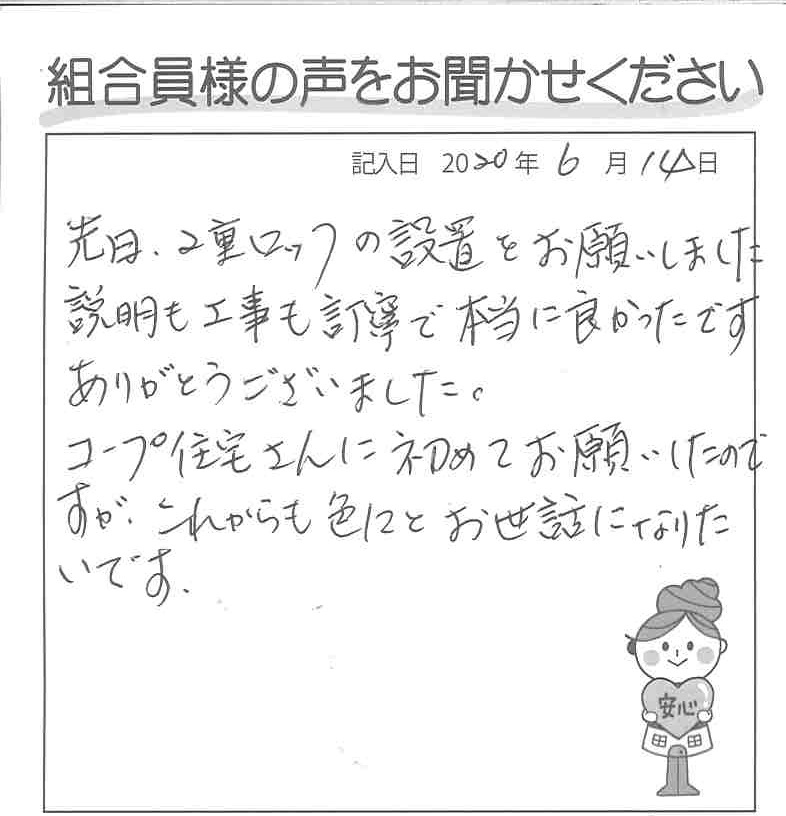 組合員様の声をお聞かせください
記入日 2020年 6月 14日
先日、2重ロックの設置をお願いしました
説明も工事も訂寧で本当に良かったです
ありがとうございました。
コープ住宅さんに初めてお願いしたので
すが、これからも色々とお世話になりた
いです.
安心